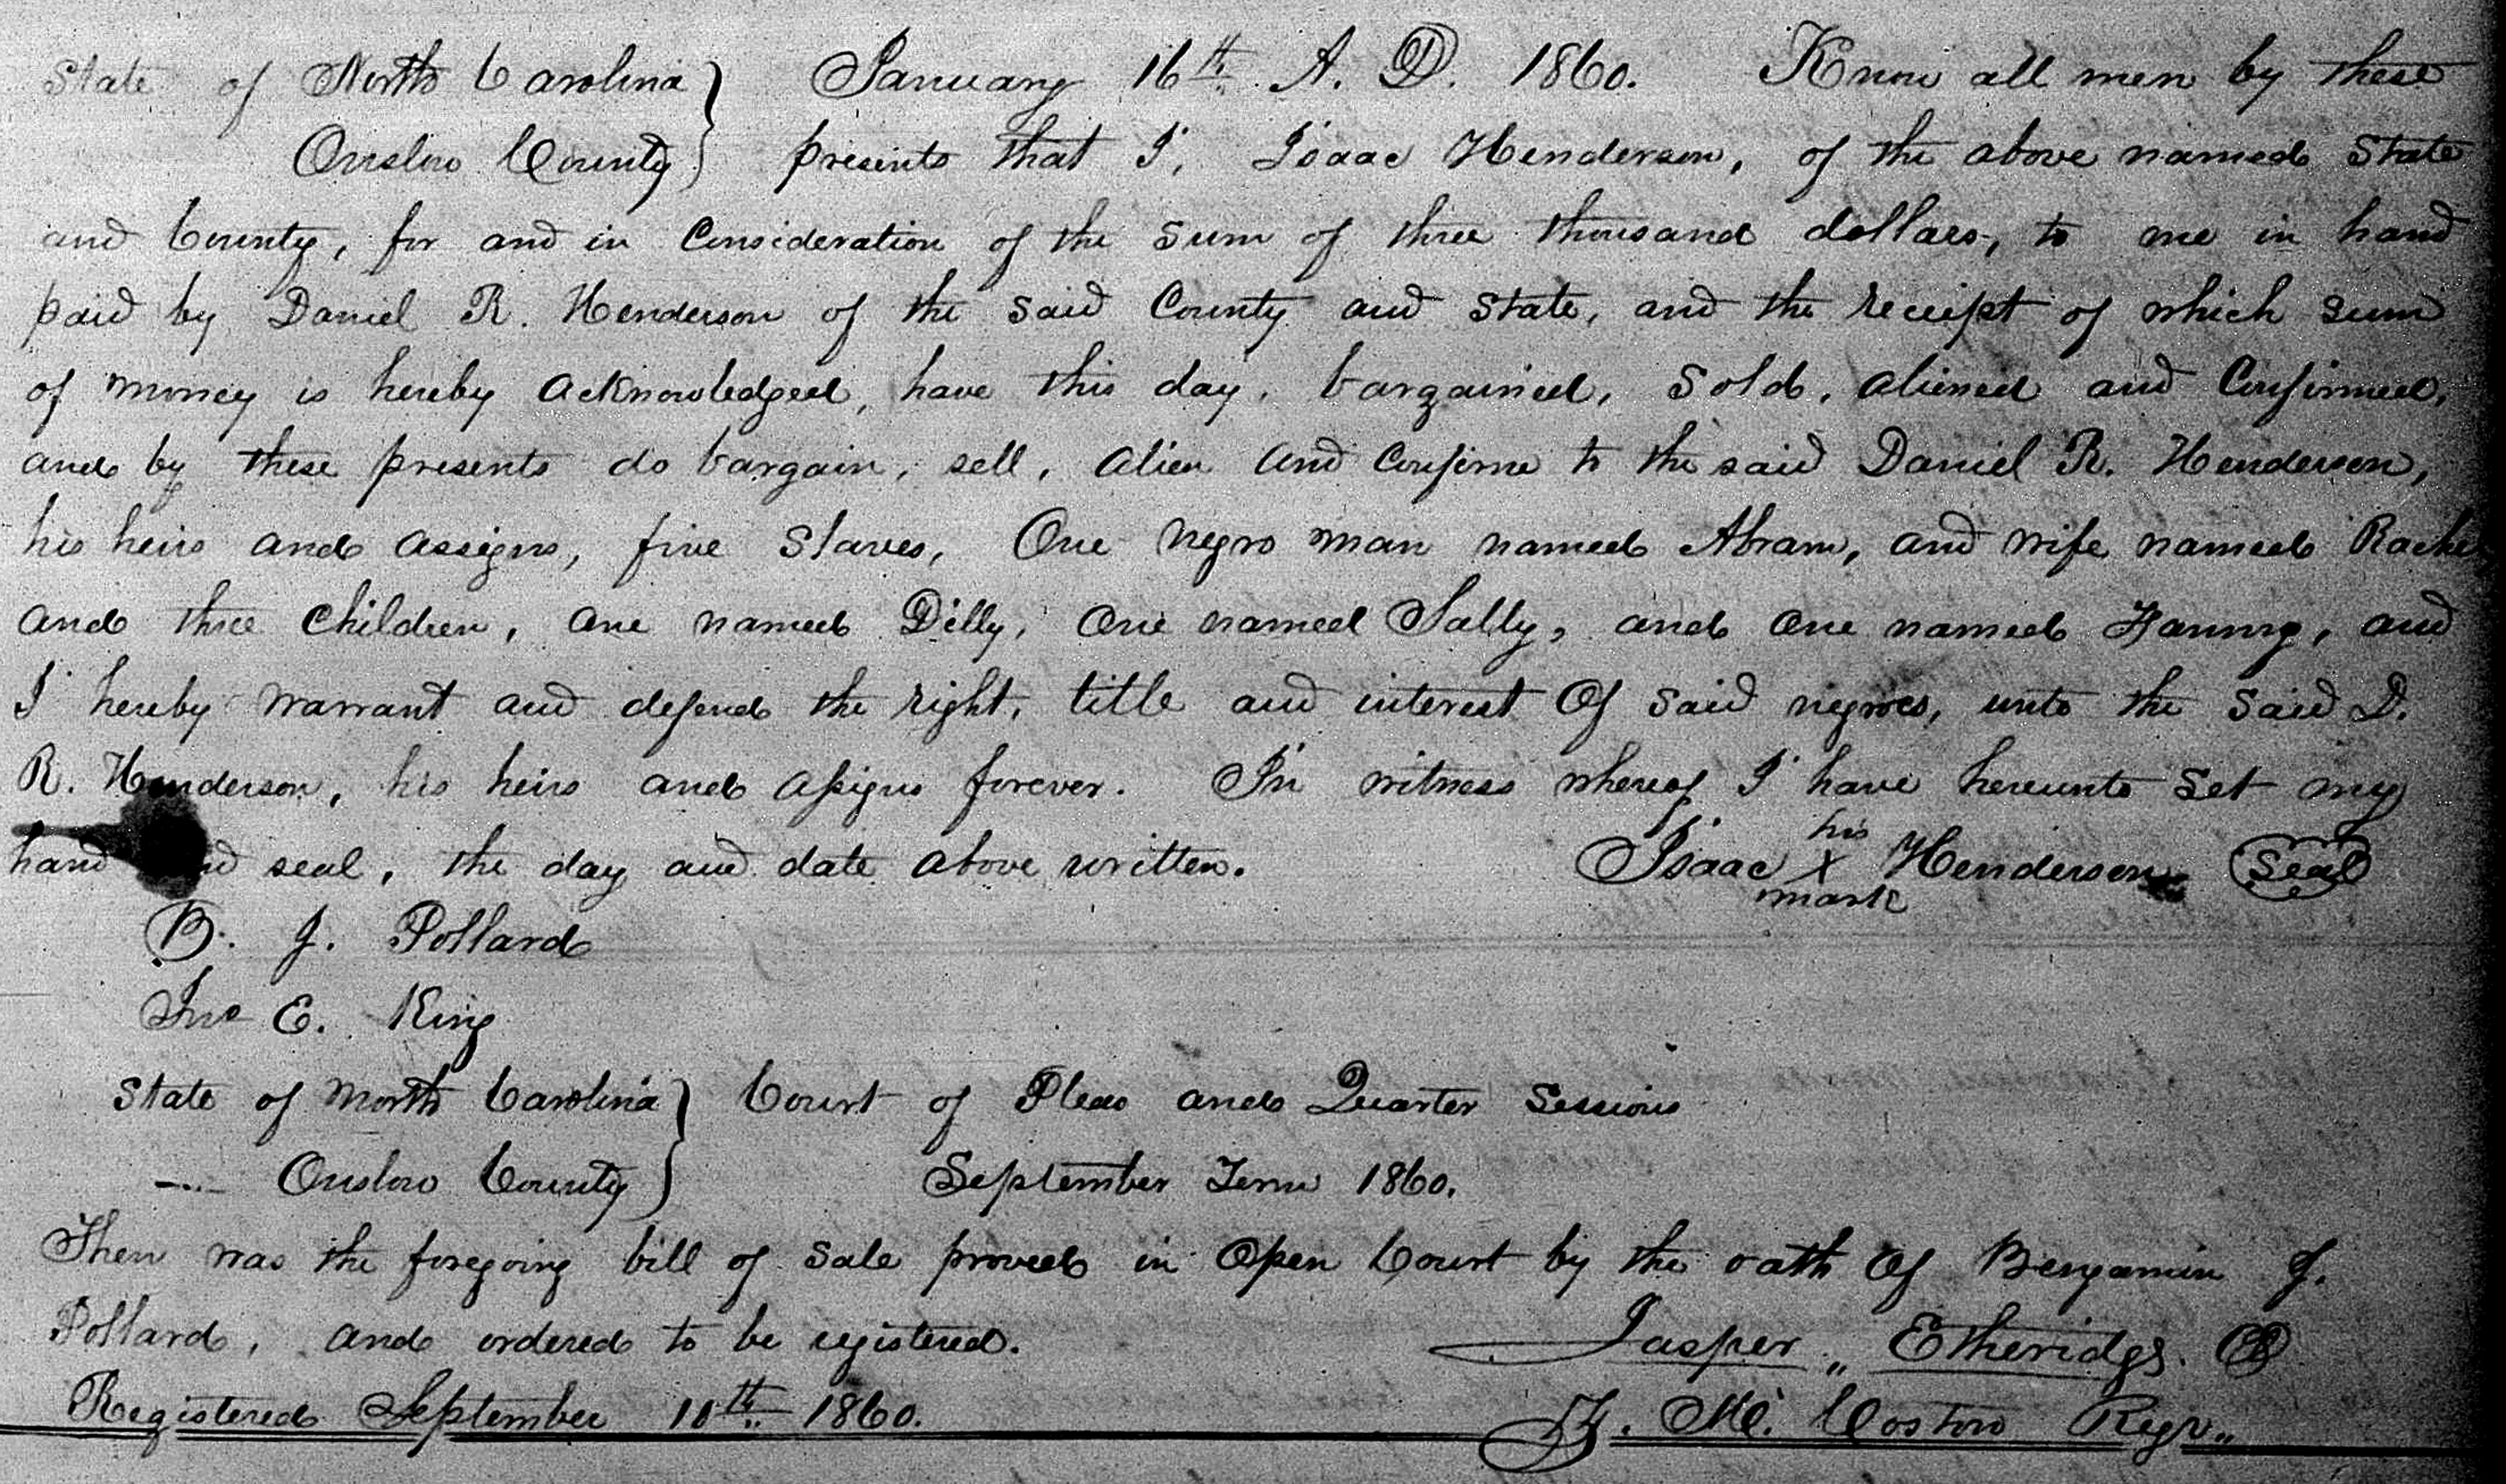 State of North Carolina } January 16th. A. D. 1860. Know all men by these
Onslow County } presents that I, Isaac Henderson, of the above named State
and County, for and in Consideration of the Sum of three thousand dollars, to me in hand
paid by Daniel R. Henderson of the said County and State, and the receipt of which sum
of money is hereby acknowledged, have this day, bargained, sold, aliened and Confirmed,
and by these presents do bargain, sell, alien and Confirm to the said Daniel R. Henderson,
his heirs and assigns, five Slaves, One negro man named Abram, and wife named Rachel
and three Children, one named Dilly, one named Sally, and one named Fanny, and
I hereby warrant and defend the right, title and interest of said negroes, unto the said D.
R. Henderson, his heirs and assigns forever. In witness whereof I have hereunto set my
hand and seal, the day and date above written. Isaac his X mark Henderson Seal
B. J. Pollard
Jno E. King
State of North Carolina } Court of Pleas and Quarter Sessions
Onslow County } September Term 1860.
Then was the foregoing bill of sale proved in Open Court by the oath of Benjamin J.
Pollard, and ordered to be registered. Jasper Etheridge
Registered September 10th. 1860. Costow Regr.